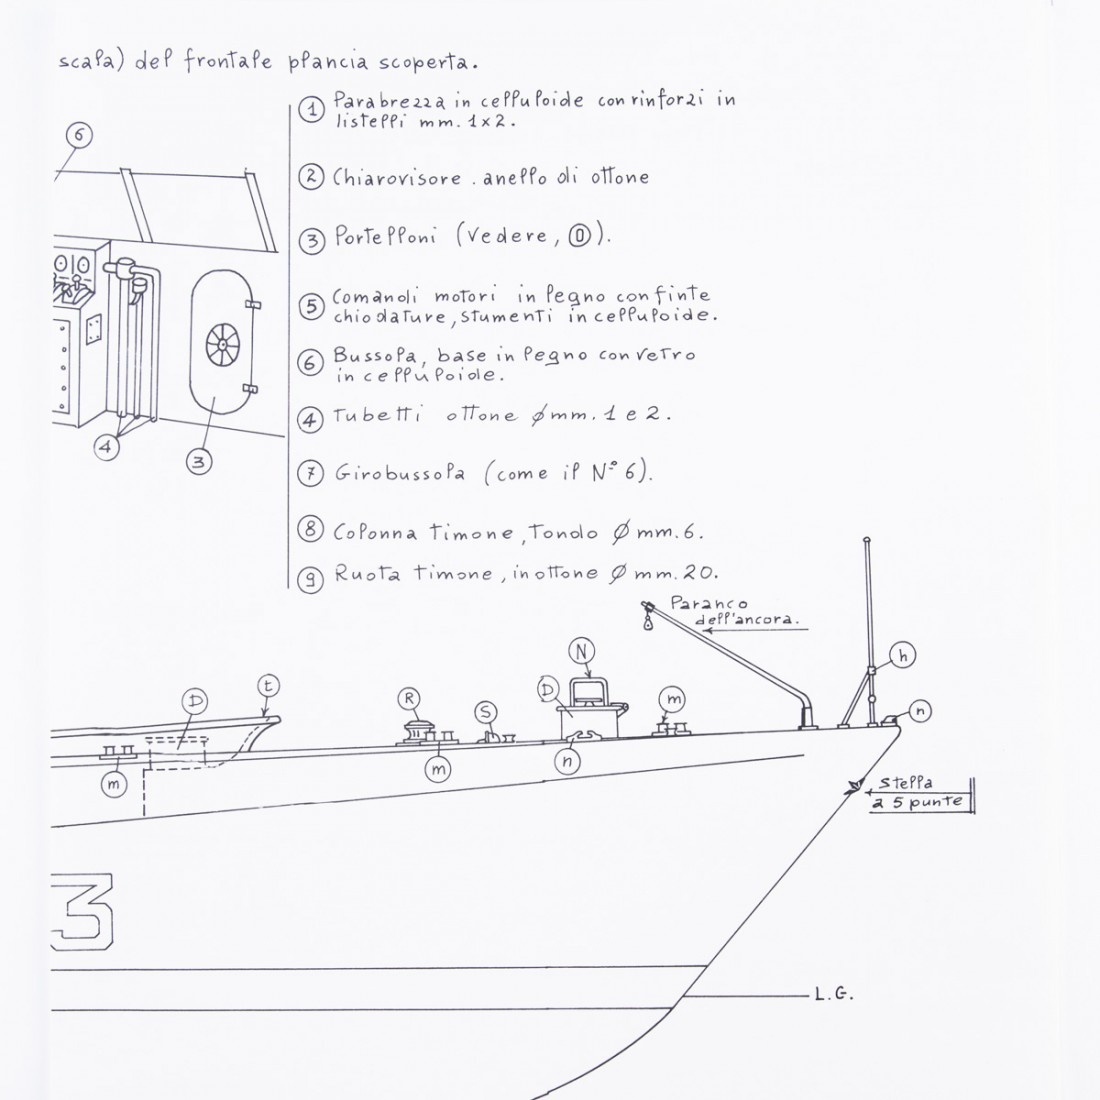 scala) del frontale plancia scoperta.
① Parabrezza in celluloide con rinforzi in
listelli mm. 1x2.
② Chiarovisore . anello di ottone
③ Portelloni (vedere, Ⓞ).
⑤ Comandi motori in legno con finte
chiodature, stumenti in celluloide.
⑥ Bussola, base in legno con vetro
in celluloide.
④ Tubetti ottone ømm. 1 e 2.
⑦ Girobussola (come il N° 6).
⑧ Colonna timone, Tondo ø mm. 6.
⑨ Ruota timone, in ottone ø mm. 20.
6
4
3
Paranco
dell'ancora.
N
h
t
D
R
S
D
m
n
m
m
n
stella
a 5 punte
3
L.G.